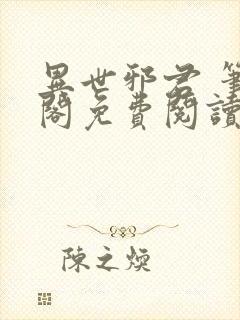 異世邪君 筆
閣免費閱讀
陳之煥